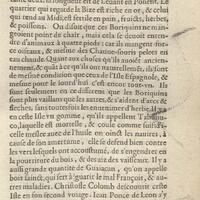 quartier qui regarde la Bize est riche en or, & celuy
qui tend au Midi est fertile en pain, fruicts, herbes,
& poissons. On disoit que ces Boriquins ne man-
geoient point de chair, mais cela se doit entendre
d'animaux à quatre pieds: car ils mangent for-
ce oiseaux, & mesme des Chauue-souris pelees en
eau chaude. Quant aux choses qu'ils auoiẽt ancien-
nement, & quãt à ce qu'ils ont naturellement, ils sont
de mesme condition que ceux de l'Isle Espagnole, &
mesme pour le iourd'hui c'est encor tout-vn. Ils
sont seulement en ce different que les Boriquins
sont plus vaillans que les autres, & s'aidẽt d'arcs &
flesches, sans toutesfois les enuenimer d'herbe. Il y
en ceste Isle vn gomme, qu'ils appellent Tabunu-
co, laquelle est mortelle, & coule comme suif. Si
elle meslee auec de l'huile on oinct les nauires, à
cause de son amertume, elle se defend bien contre
les vers lesquels ont accoustumé, de s'engendrer de
la pourriture du bois, & des aiz des vaisseaux. Il y
aussi grande quantité de Guaiacan, qu'on appelle
bois sainct, qui sert à guarir le mal François, & au-
tres maladies. Christofle Colomb descouurit ceste
Isle en son second voiage. Iean Ponce de Leon s'y